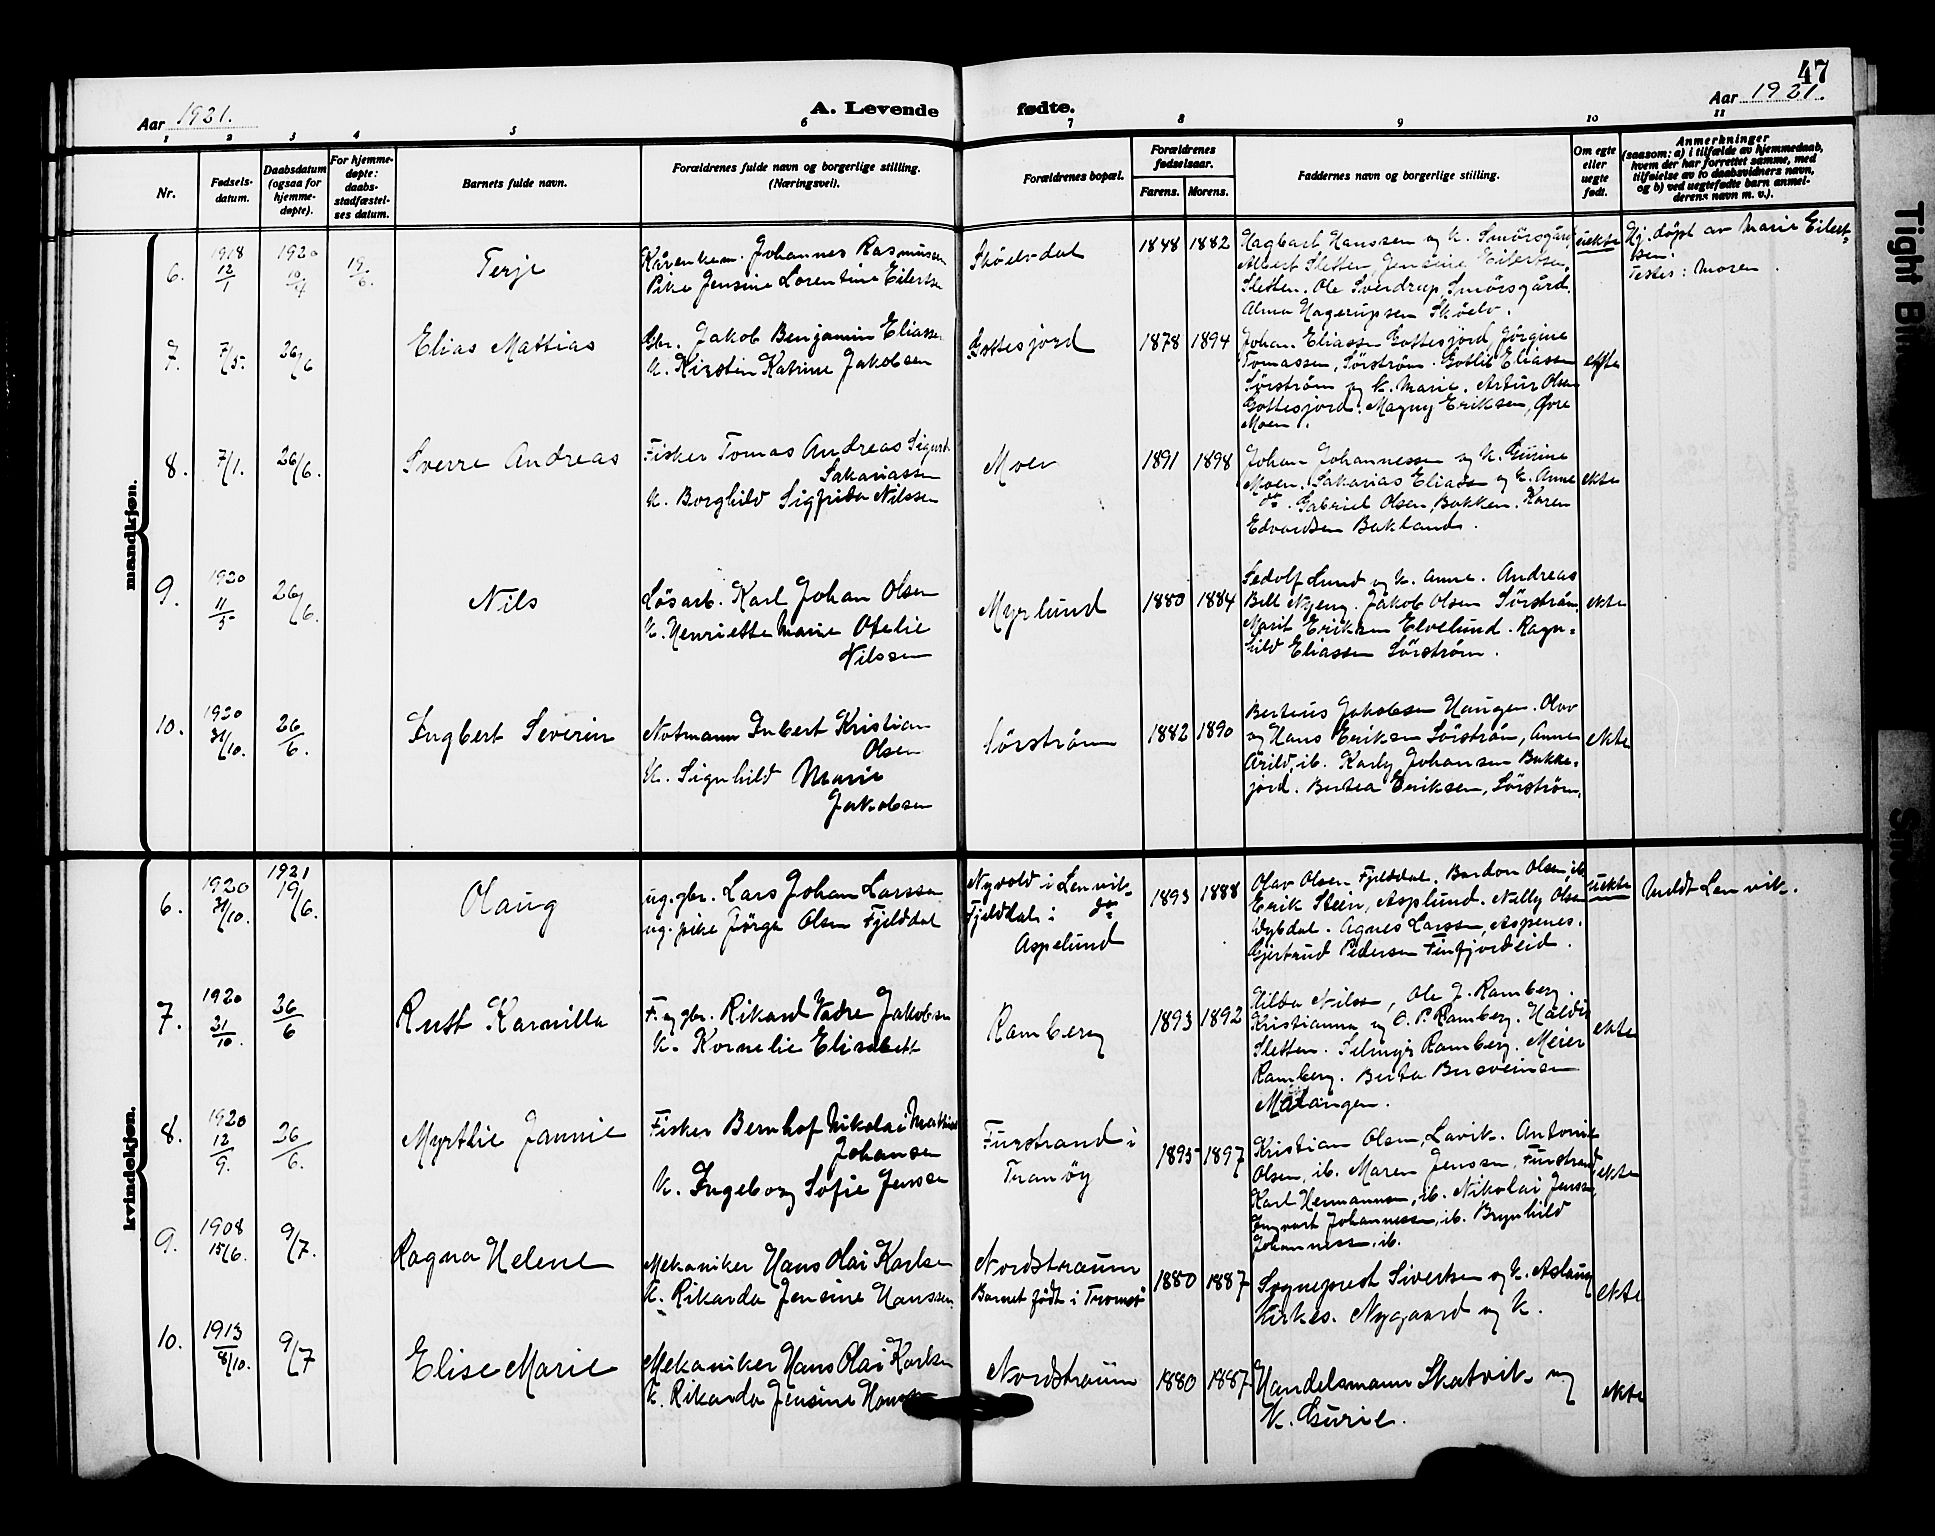 47
Aar 1921.
A. Levende fødte.
Aar 1921.
1 2 3 4 5 6 7 8 9 10 11
Nr.
Fødsels-
datum.
Daabsdatum
(ogsaa for
hjemme-
døpte).
For hjemme-
døpte:
daabs-
stadfæstel-
ses datum.
Barnets fulde navn.
Forældrenes fulde navn og borgerlige stilling.
(Næringsvei).
Forældrenes bopæl.
Forældrenes
fødselsaar.
Farens. Morens.
Faddernes navn og borgerlige stilling.
Om egte
eller
uegte
født.
Anmerkninger
(saasom: a) i tilfælde av hjemmedaab,
hvem der har forrettet samme, med
tilføielse av to daabsvidners navn,
og b) ved uegtefødte barn anmel-
derens navn m. v.).
mandkjøn.
6.
1918
12/1
1920
10/4
19/6.
Terje
Kårenkem. Johannes Rasmussen
Pike Jensine Lorentine Eilertsen
Skøelvdal
1848 1882
Hagbart Hanssen og K. Smörsgård
Albert Sletten, Jensine Eilertsen,
Sletten. Ole Sverdrup, Smörsgård.
Alma Hagerupsen Sköelv.
uekte
Hj. døpt av Marie Eilert-
sen.
Testes: Moren.
7.
7/5.
26/6
Elias Mattias
Gbr. Jakob Benjamin Eliassen
K. Kirstin Katrine Jakobsen
Gottesjord
1878 1894
Johan Eliassen Gottesjord, Jörgine
Tomassen, Sörström. Gotlib Eliassen
Sörström og K. Marie. Artur Olsen
Gottesjord. Magny Eriksen, Øvre
Moen.
ekte
8.
7/1.
26/6.
Sverre Andreas
Fisker Tomas Andreas Sigurd
Sakariassen
K. Borghild Sigfrida Nilssen
Moen
1891 1898
Johan Johannessen og K. Gurine
Moen. Sakarias Eliassen og K. Anne
do. Gabriel Olsen, Bakken. Karen
Edvardsen Bakland.
ekte
9.
1920
11/5
26/6.
Nils
Løsarb. Karl Johan Olsen
K. Henriette Marie Ofelie
Nilssen
Myrlund
1880 1884
Sedolf Lund og K. Anne. Andreas
Bell Nyeng. Jakob Olsen Sörström
Marit Eriksen Elvelund. Ragn-
hild Eliassen Sörström.
ekte
10.
1920
31/10.
26/6.
Ingbert Severin
Notmann Inbert Kristian
Olsen
K. Signhild Marie
Jakobsen
Sörström
1882 1890
Berteus Jakobsen Haugen. Olav
og Hans Eriksen Sörström, Anne
Arild, ib. Karly Johansen Bakke-
jord. Bertea Eriksen, Sörström.
ekte
kvindekjøn.
6.
1920
31/10.
1921
19/6.
Olaug
ug. gbr. Lars Johan Larssen
ug. pike Jørga Olsen Fjelddal
Nyvold i Lenvik
Fjelddal i do
Aspelund
1893 1888
Olav Olsen Fjelddal. Bardon Olsen, ib.
Erik Steen, Asplund. Nelly Olsen
Dybdal. Agnes Larssen, Aspenes.
Gjertrud Pedersen Finfjordeid.
uekte
Meldt Lenvik.
7.
1920
31/10.
26/6
Rutt Kamilla
F. og gbr. Rikard Vadre Jakobsen
K. Kornelie Elisabett
Ramberg
1893 1892
Hilda Nilsen, Ole J. Ramberg.
Kristianna og O. P. Ramberg. Haldis
Sletten. Selmer Ramberg. Meier
Ramberg. Berta Bersveinsen
Malangen.
ekte
8.
1920
12/9.
26/6.
Myrthie Jannie
Fisker Bernhof Nikolai Mathias
Johansen
K. Ingeborg Sofie Jenssen
Furstrand i
Tranöy
1895 1897
Kristian Olsen, Lavik. Antonie
Olsen, ib. Maren Jenssen, Furstrand
Karl Hermannsen, ib. Nikolai Jenssen,
Ingvart Johannessen, ib. Brynhild
Johannessen, ib.
ekte
9.
1908
15/6.
9/7.
Ragna Helene
Mekaniker Hans Olai Karlsen
K. Rikarda Jensine Hanssen
Nordstraum
Barnet født i Tromsö
1880 1887
Sogneprest Sivertsen og K. Aslaug
Kirkes. Nygaard og K.
ekte
10.
1913
8/10.
9/7
Elise Marie
Mekaniker Hans Olai Karlsen
K. Rikarda Jensine Hanssen
Nordstraum
1880 1887
Handelsmann Skatvik og
K. Gurie.
ekte
Tight Bin